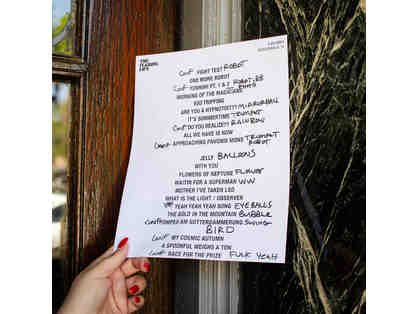 THE
FLAMING
LIPS
CONF FIGHT TEST ROBOT
ONE MORE ROBOT
CONF YOSHIMI PT. 1 & 2 ROBOT, BB
MORNING OF THE MAGICIANS
EGO TRIPPING
ARE YOU A HYPNOTIST?? MIRRORBALL
IT'S SUMMERTIME TRUMPET
CONF DO YOU REALIZE?? RAINBOW
ALL WE HAVE IS NOW
APPROACHING PAVONIS MONS TRUMPET
ROBOT
JELLY BALLOONS
WITH YOU
FLOWERS OF NEPTUNE FLOWER
WAITIN FOR A SUPERMAN WW
MOTHER I'VE TAKEN LSD
WHAT IS THE LIGHT / OBSERVER
YEAH YEAH YEAH SONG EYEBALLS
THE GOLD IN THE MOUNTAIN BUBBLE
POMPEII AM GÖTTERDÄMMERUNG SWING
BIRD
CONF MY COSMIC AUTUMN
A SPOONFUL WEIGHS A TON
CONF RACE FOR THE PRIZE FUCK YEAH